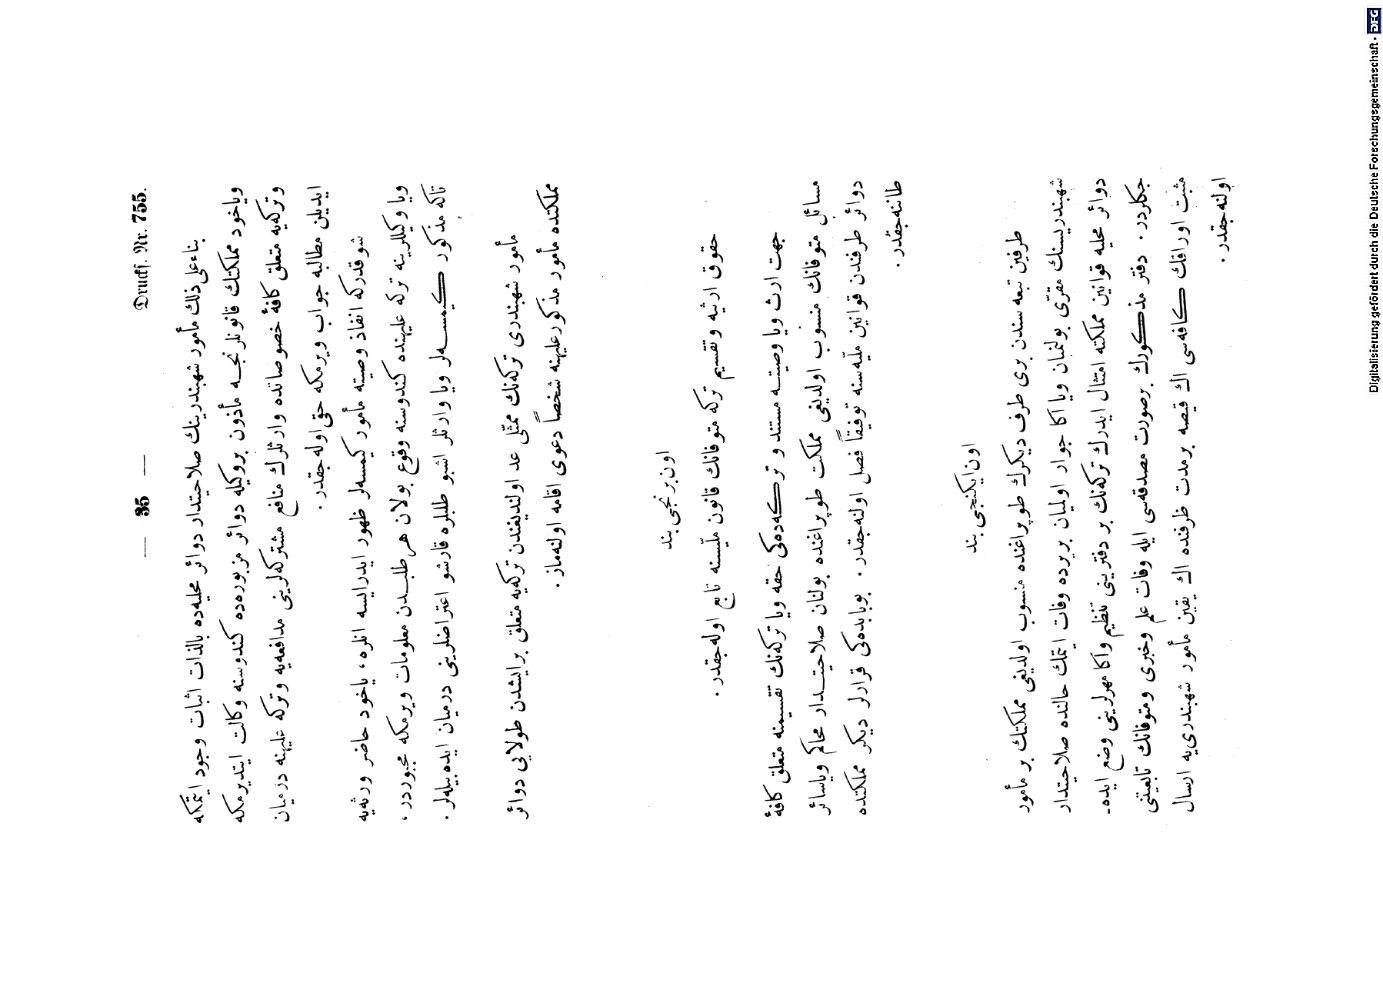 — 35 —
Druckf. Nr. 755.
بناءعلی ذلك مأمور شهبندرینك صلاحیتدار دوائر محلیه‌ده بالذات اثبات وجود ایتمكه
ویاخود مملكتك قانونلرنجه مأذون بروكیله دوائر مزبوره‌ده كندوسنه وكالت ایتدیرمكه
وتركه‌یه متعلق كافهٔ خصوصاتده وارثلرك منافع مشتركه‌لرینی مدافعه‌یه وتركه علیهنه درمیان
ایدیلن مطالبه جواب ویرمكه حقی اوله‌جقدر ·
شوقدركه انفاذ وصیته مأمور كیمسه‌لر ظهور ایدرایسه انلره، یاخود حاضر ورثه‌یه
ویا وكیللرینه تركه علیهنده كندوسنه وقوع بولان هر طلبدن معلومات ویرمكه مجبوردر،
تاكه مذكور كیمسه‌لر ویا وارثلر اشبو طلبلره قارشو اعتراضلرینی درمیان ایده‌بیله‌لر ·
مأمور شهبندری تركه‌نك ممثلی عد اولندیغندن تركه‌یه متعلق برایشدن طولایی دوائر
مملكتده مأمور مذكورعلیهنه شخصاً دعوی اقامه اولنه‌ماز ·
اون برنجی بند
حقوق ارثیه وتقسیم تركه متوفانك قانون ملیسنه تابع اوله‌جقدر ·
جهت ارث ویا وصیته مستند و تركه‌ده‌كی حقه ویا تركه‌نك تقسیمنه متعلق كافهٔ
مسائل متوفانك منسوب اولدیغی مملكت طوپراغنده بولنان صلاحیتدار محاكم ویاسائر
دوائر طرفندن قوانین ملیه‌سنه توفیقاً فصل اولنه‌جقدر · بوبابده‌كی قرارلر دیكر مملكتده
طاننه‌جقدر ·
اون ایكنجی بند
طرفین تبعه سندن بری طرف دیكرك طوپراغنده منسوب اولدیغی مملكتك بر مأمور
شهبندریسنك مقری بولنمیان ویا اكا جوار اولمیان بریرده وفات ایتمك حالنده صلاحیتدار
دوائر محلیه قوانین مملكته امتثال ایدرك تركه‌نك بر دفترینی تنظیم واكا مهرلرینی وضع ایده-
جكلردر · دفتر مذكورك برصورت مصدقه‌سی ایله وفات علم وخبری ومتوفانك تابعیتنی
مثبت اوراقك كافه‌سی اك قیصه برمدت ظرفنده اك یقین مأمور شهبندری‌یه ارسال
اولنه‌جقدر ·
Digitalisierung gefördert durch die Deutsche Forschungsgemeinschaft · DFG